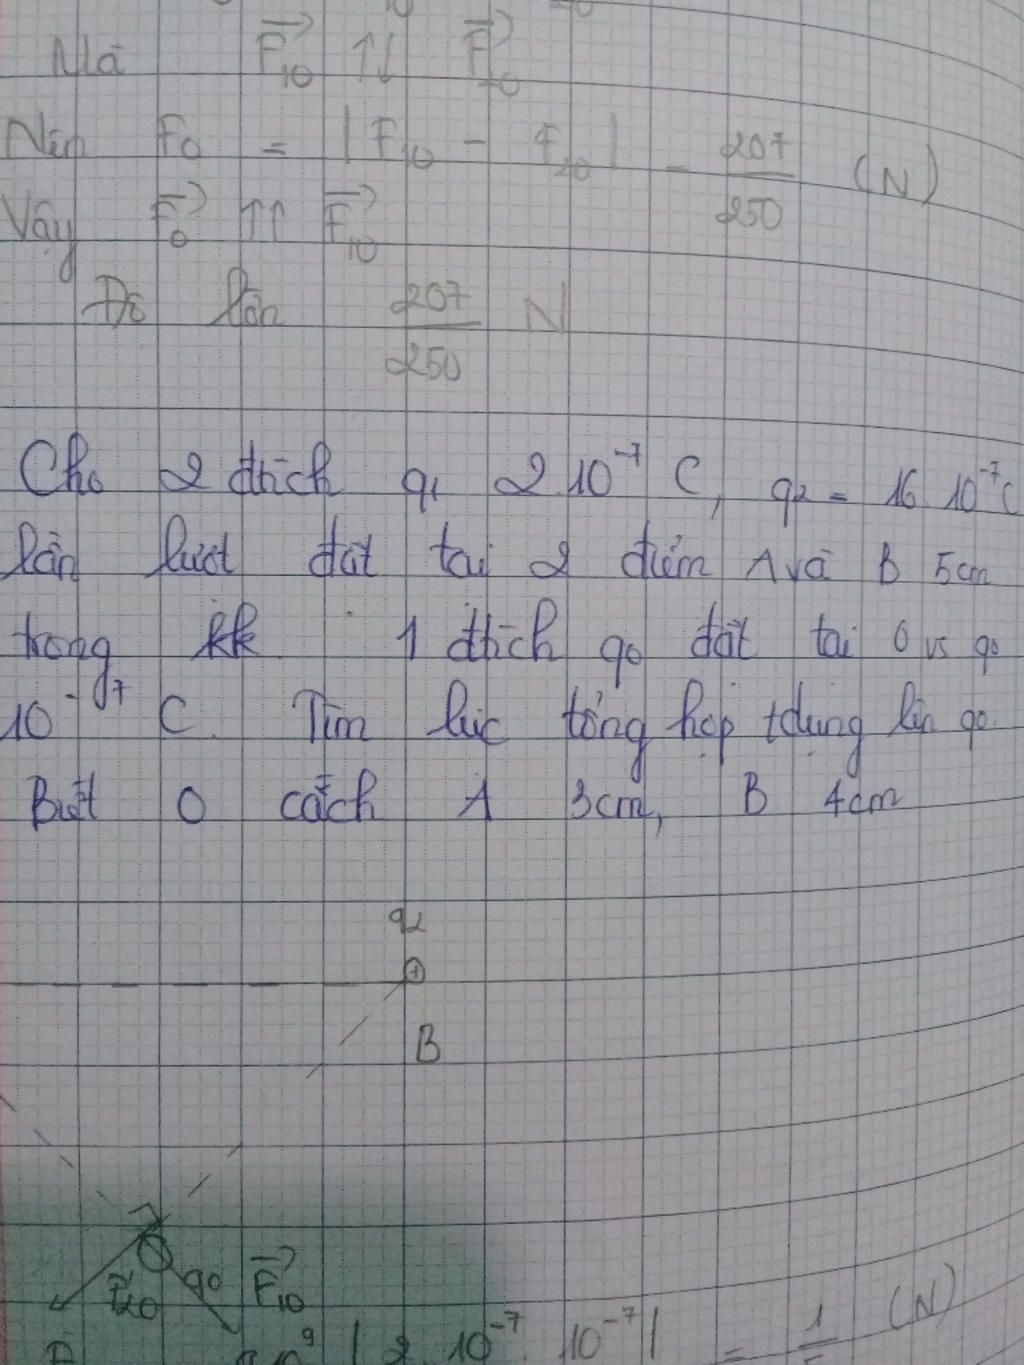 Mà F₁₀ ↑↓ F₂₀
Nên F₀ = |F₁₀ - F₂₀| = 207/250 (N)
Vậy F₀ ↑↑ F₁₀
Độ lớn 207/250 N
Cho 2 đtích q₁ 2.10⁻⁷ C, q₂ = 16 10⁻⁷ C
lần lượt đặt tại 2 điểm A và B 5cm
trong kk. 1 đtích q₀ đặt tại O vs q₀
10⁻⁷ C. Tìm lực tổng hợp tdụng lên q₀.
Biết O cách A 3cm, B 4cm
q₂
+
B
F₂₀ q₀ F₁₀
| 2. 10⁻⁷ 10⁻⁷ | = (N)